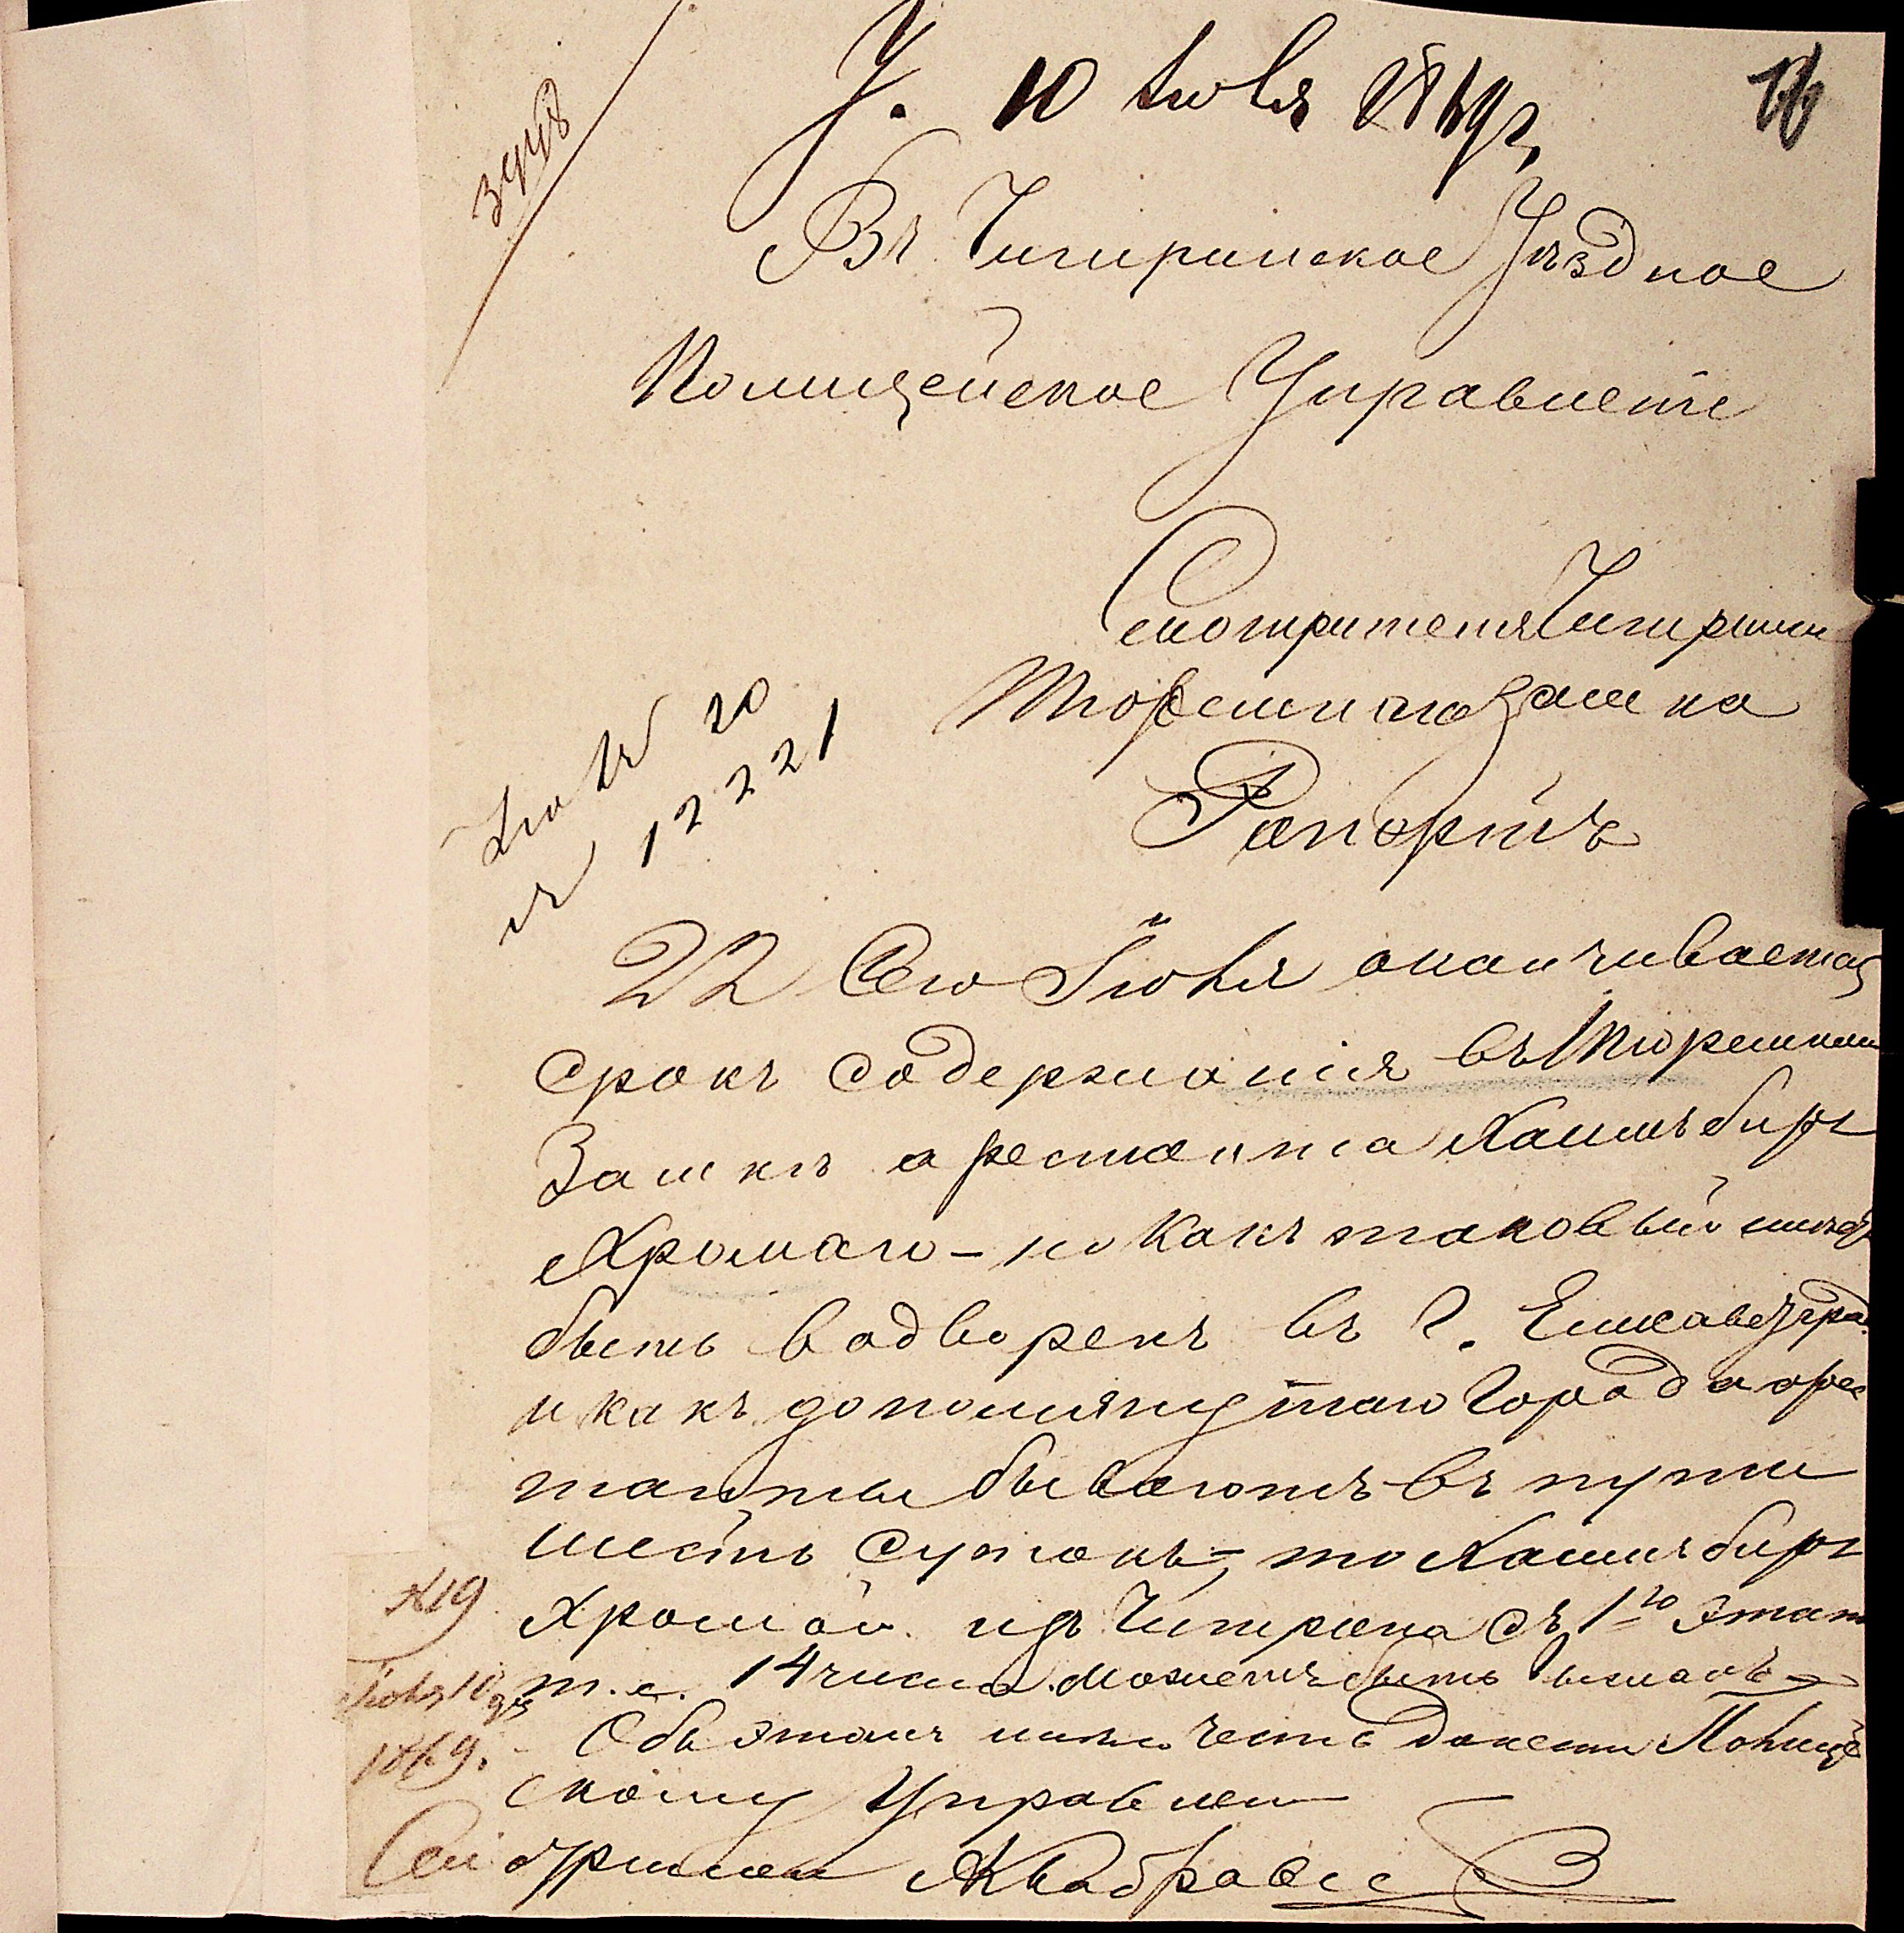 У. 10 Июля 1869 г.
16
3448
Въ Чигиринское Уѣздное
Полицейское Управленіе
Смотрителя Чигирин
Тюремнаго Замка
20
12221
Рапортъ
22 Сего Іюля оканчивается
срокъ содержанія въ Тюремномъ
Замкѣ арестанта Хаимъ бирг
Хромаго – но какъ таковый
быть водворенъ въ г. Елисаветград
и какъ до помянутаго Города арес
танты бываютъ въ пути
шесть сутокъ, то Хаимъ бирг
Хромой изъ Чигирина съ 1го Этап
т. е. 14 числа можетъ быть высланъ
Объ этомъ имѣю честь донести Полицей
скому Управлен
№ 19
Іюля 10 дня
1869.
Смотритель